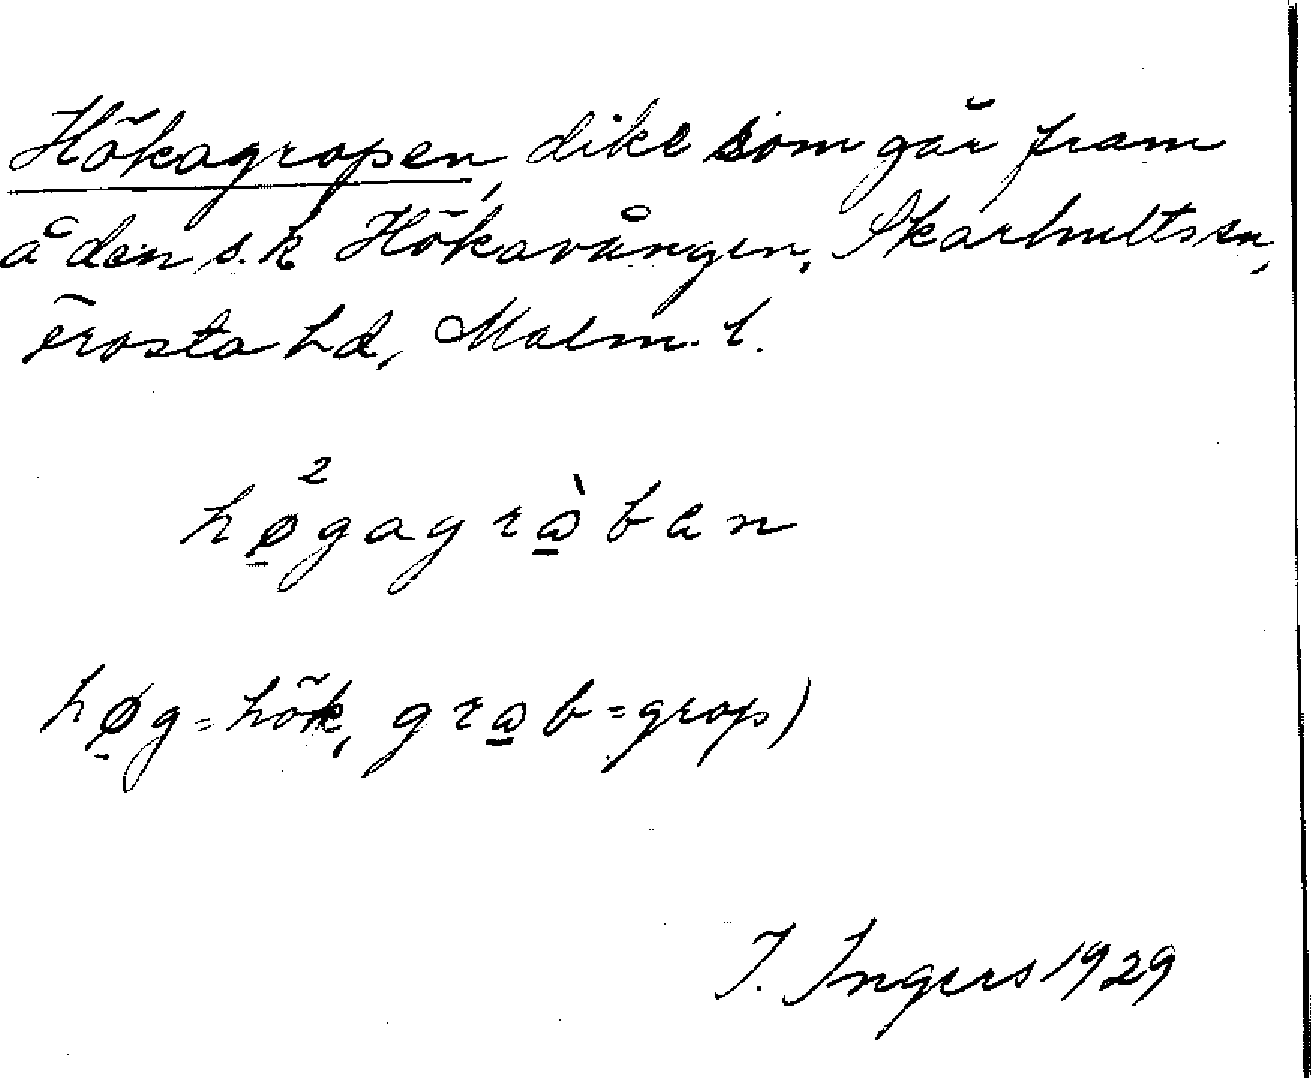 Hökagropen, dike som går fram
å den s.k Hökavången, Skarhults sn,
Frosta hd, Malm. l.
hø̱²gagrà̱ban
hø̱g = hök, gra̱b = grop)
I. Ingers 1929